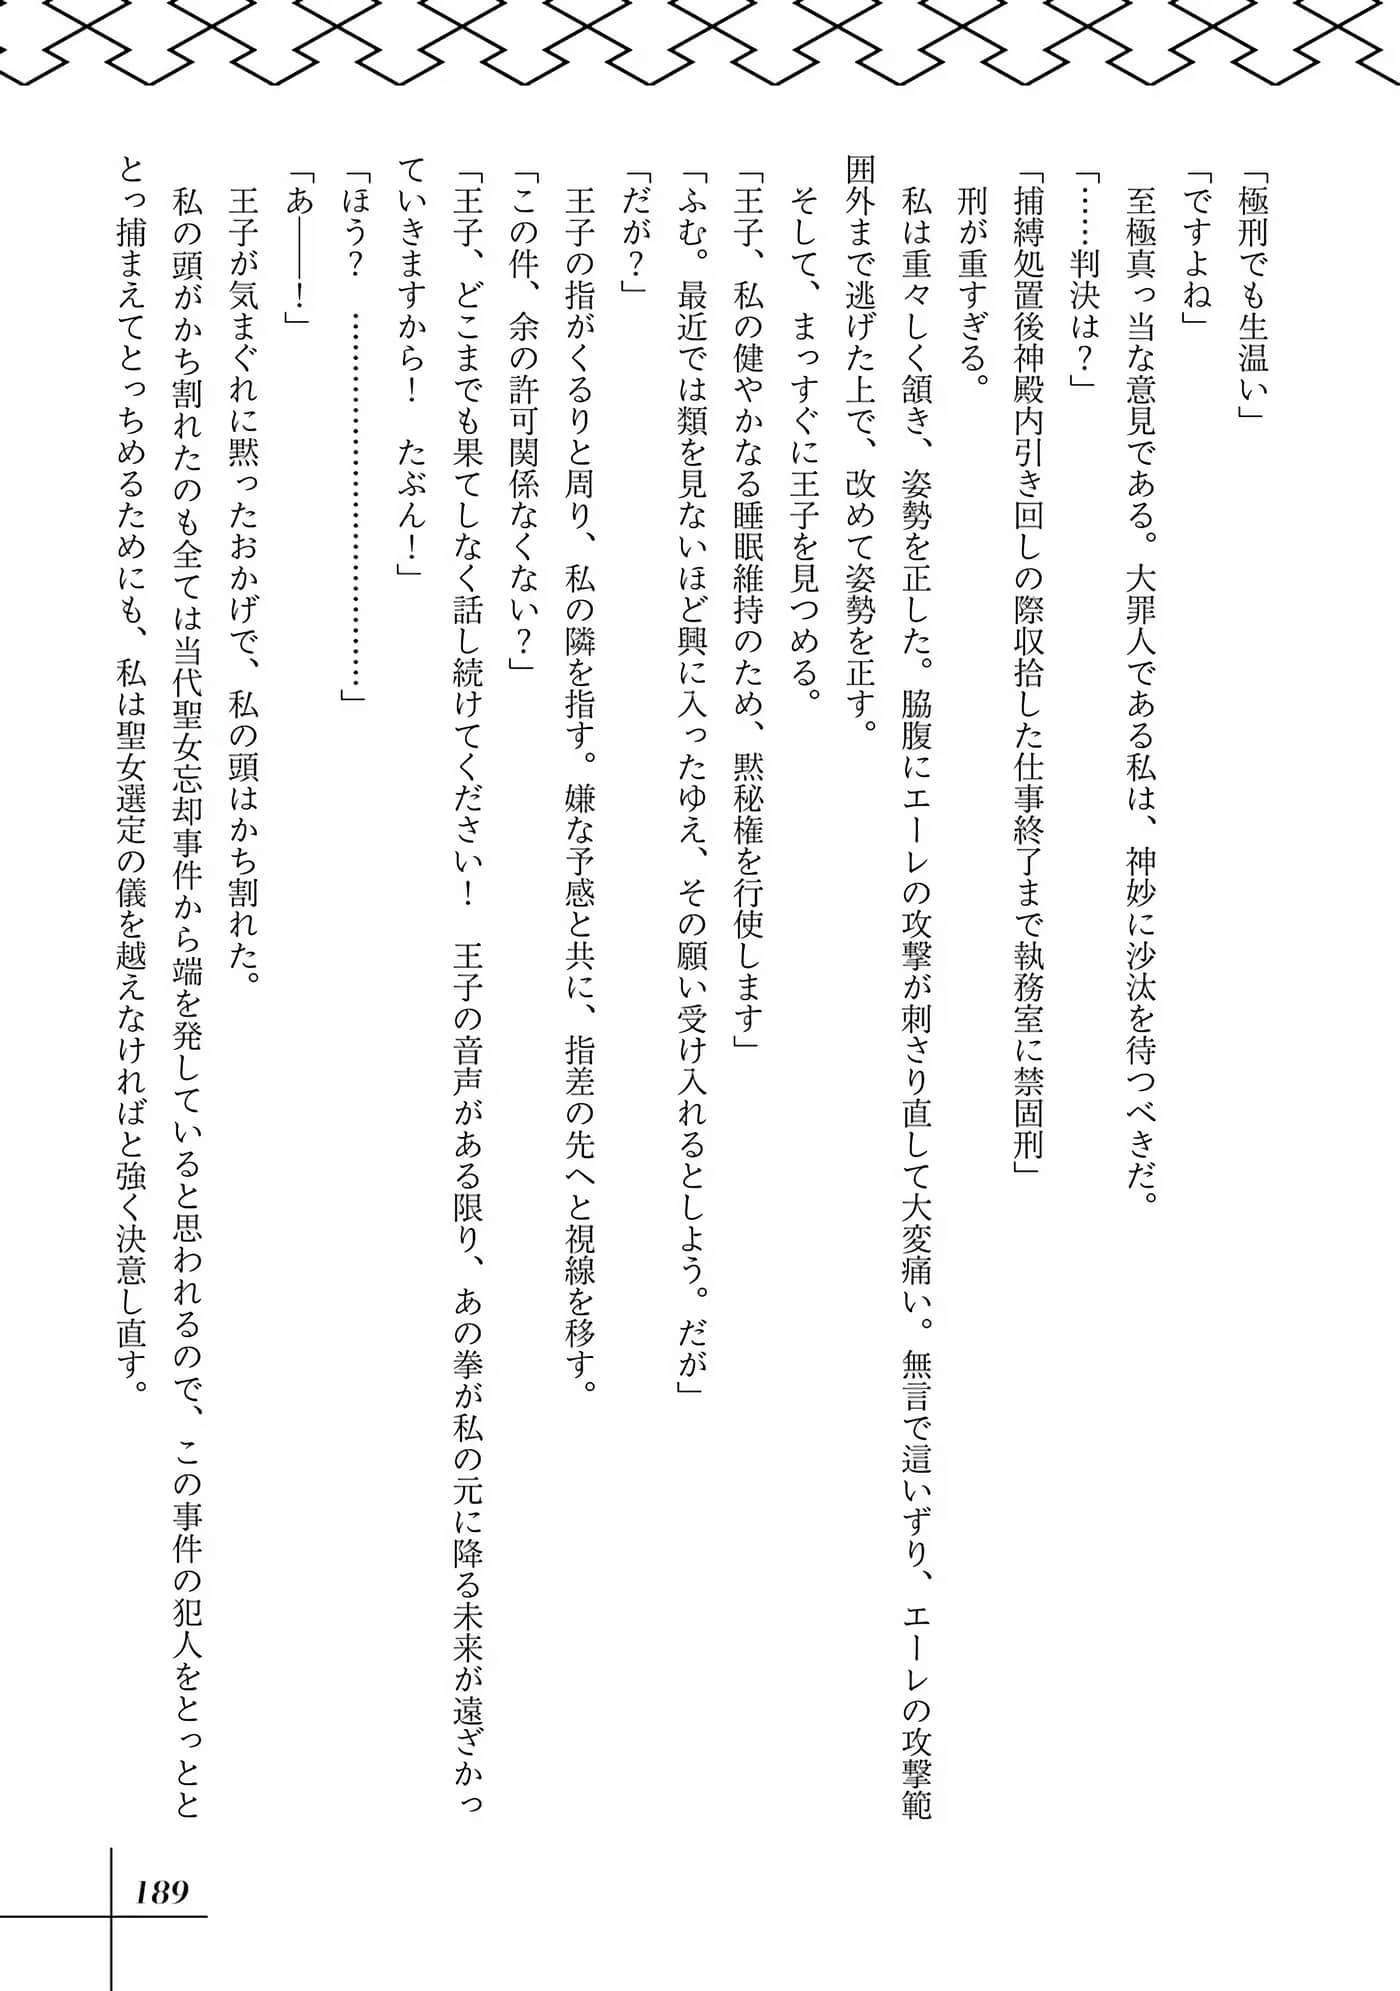 「極刑でも生温い」
「ですよね」
　至極真っ当な意見である。大罪人である私は、神妙に沙汰を待つべきだ。
「……判決は？」
「捕縛処置後神殿内引き回しの際収拾した仕事終了まで執務室に禁固刑」
　刑が重すぎる。
　私は重々しく頷き、姿勢を正した。脇腹にエーレの攻撃が刺さり直して大変痛い。無言で這いずり、エーレの攻撃範
囲外まで逃げた上で、改めて姿勢を正す。
　そして、まっすぐに王子を見つめる。
「王子、私の健やかなる睡眠維持のため、黙秘権を行使します」
「ふむ。最近では類を見ないほど興に入ったゆえ、その願い受け入れるとしよう。だが」
「だが？」
　王子の指がくるりと周り、私の隣を指す。嫌な予感と共に、指差の先へと視線を移す。
「この件、余の許可関係なくない？」
「王子、どこまでも果てしなく話し続けてください！　王子の音声がある限り、あの拳が私の元に降る未来が遠ざかっ
ていきますから！　たぶん！」
「ほう？　……………………………」
「あ――！」
　王子が気まぐれに黙ったおかげで、私の頭はかち割れた。
　私の頭がかち割れたのも全ては当代聖女忘却事件から端を発していると思われるので、この事件の犯人をとっとと
とっ捕まえてとっちめるためにも、私は聖女選定の儀を越えなければと強く決意し直す。
189